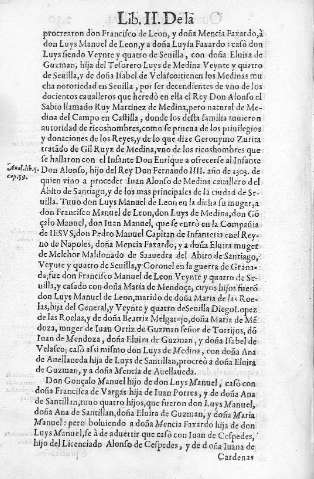 Lib. II. De la
procrearon don Francisco de Leon, y doña Mencia Faxardo, à
don Luys Manuel de Leon, y a doña Luysa Faxardo: casò don
Luys siendo Veynte y quatro de Sevilla, con doña Eluira de
Guzman, hija del Tesorero Luys de Medina Veynte y quatro
de Seuilla, y de doña Isabel de Velasco: tienen los Medinas mu
cha notoriedad en Seuilla, por ser decendientes de vno de los
docientos caualleros que heredò en ella el Rey Don Alonso el
Sabio llamado Ruy Martinez de Medina, pero natural de Me
dina del Campo en Castilla, donde los desta familia tuuieron
autoridad de ricoshombres, como se prueua de los priuilegios
y donaciones de los Reyes, y de lo que dize Geronymo Zurita
tratãdo de Gil Ruyz de Medina, vno de los ricoshombres que
Anal. lib. 5. cap. 59.
se hallaron con el Infante Don Enrique a ofrecerse al Infante
Don Alonso, hijo del Rey Don Fernando IIII. año de 1303. de
quien vino a proceder Iuan Alonso de Medina cauallero del
Abito de Santiago, y de los mas principales de la ciudad de Se-
uilla. Tuuo don Luys Manuel de Leon en la dicha su muger, a
don Francisco Manuel de Leon, don Luys de Medina, don Gõ
çalo Manuel, don Iuan Manuel, que se entrò en la Compañia
de IESVS, don Pedro Manuel Capitan de Infanteria en el Rey-
no de Napoles, doña Mencia Faxardo, y a doña Eluira muger
de Melchor Maldonado de Saauedra del Abito de Santiago,
Veynte y quatro de Seuilla, y Coronel en la guerra de Grana-
da, fue don Francisco Manuel de Leon Veynte y quatro de Se-
uilla, y casado con doña Maria de Mendoça, cuyos hijos fuerõ
don Luys Manuel de Leon, marido de doña Maria de las Roe-
las, hija del General, y Veynte y quatro de Seuilla Diego Lopez
de las Roelas, y de doña Beatriz Melgarejo, doña Maria de Mẽ
doza, muger de Iuan Ortiz de Guzman señor de Torrijos, dõ
Iuan de Mendoza, doña Eluira de Guzman, y doña Isabel de
Velasco; casò assimismo don Luys de Medina, con doña Ana
de Auellaneda hija de Luys de Santillan, procreò a doña Eluira
de Guzman, y a doña Mencia de Auellaneda.
Don Gonçalo Manuel hijo de don Luys Manuel, casò con
doña Francisca de Vargas hija de Iuan Porras, y de doña Ana
de Santillan, tuuo quatro hijos, que fueron don Luys Manuel,
doña Ana de Santillan, doña Eluira de Guzman, y doña Maria
Manuel: pero boluiendo a doña Mencia Faxardo hija de don
Luys Manuel, se à de aduertir que casò con Iuan de Cespedes,
hijo del Licenciado Alonso de Cespedes, y de doña Iuana de
Cardenas